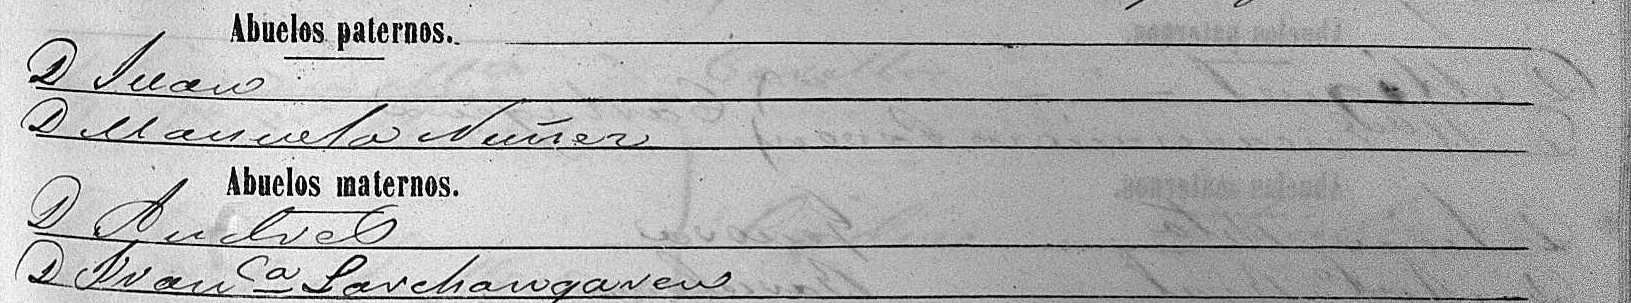 Abuelos paternos.
D Juan
D Manuela Nuñez
Abuelos maternos.
D Andres
D Fran<sup>ca</sup>